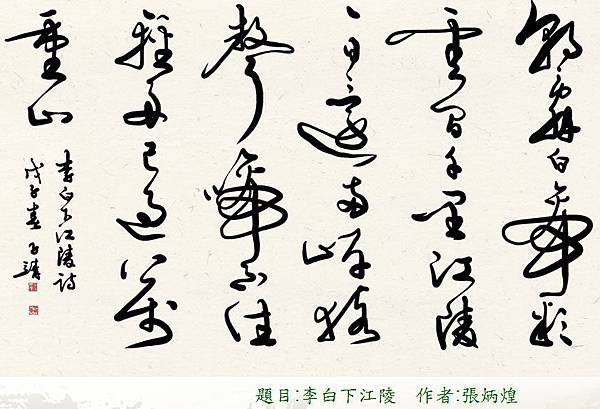 朝辭白帝彩
雲間千里江陵
一日還兩岸猿
聲啼不住
輕舟已過萬
重山
李白下江陵詩
戊子春 子靖
題目:李白下江陵 作者:張炳煌